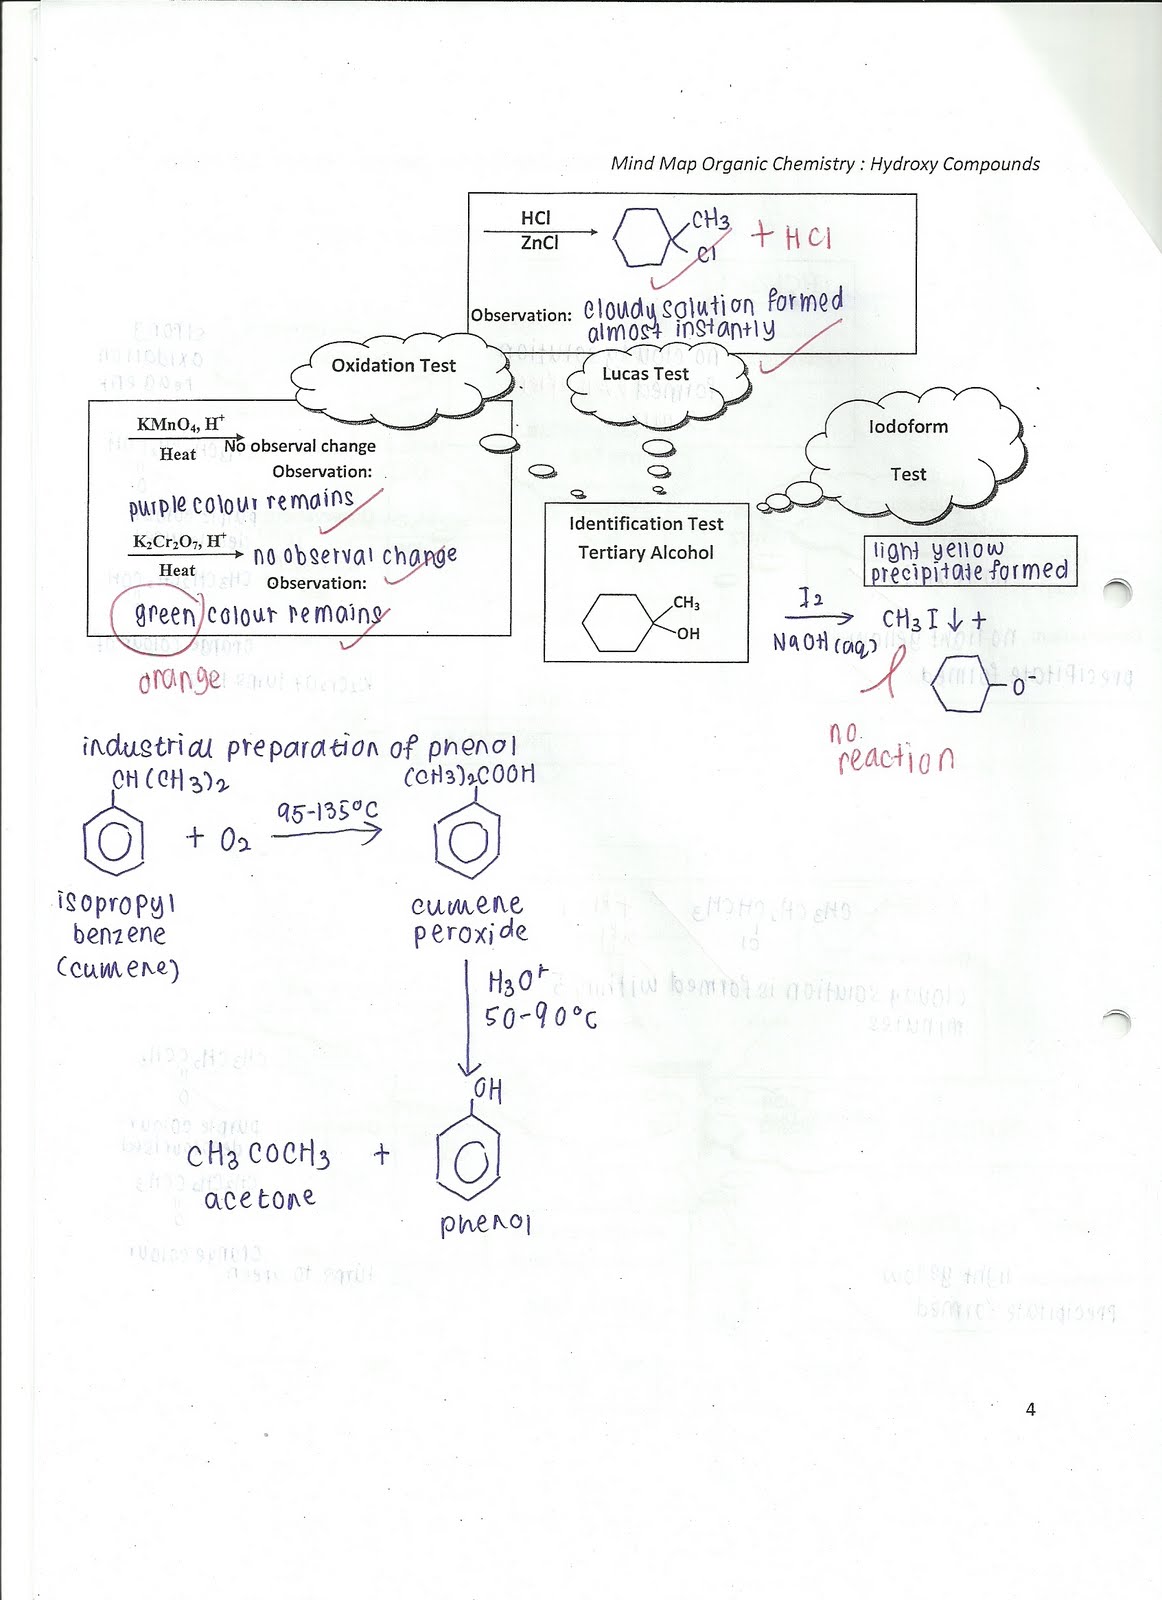 Mind Map Organic Chemistry : Hydroxy Compounds
HCl
ZnCl
CH3
Cl
+ HCl
Observation: cloudy solution formed
almost instantly
Oxidation Test
Lucas Test
Iodoform
Test
KMnO4, H+
Heat
No observal change
Observation:
purple colour remains
K2Cr2O7, H+
Heat
no observal change
Observation:
green colour remains
orange
Identification Test
Tertiary Alcohol
CH3
OH
light yellow
precipitate formed
I2
NaOH(aq)
CH3I ↓ +
O-
no
reaction
industrial preparation of phenol
CH(CH3)2
+ O2
95-135°C
(CH3)2COOH
isopropyl
benzene
(cumene)
cumene
peroxide
H3O+
50-90°C
OH
CH3COCH3 +
acetone
phenol
4